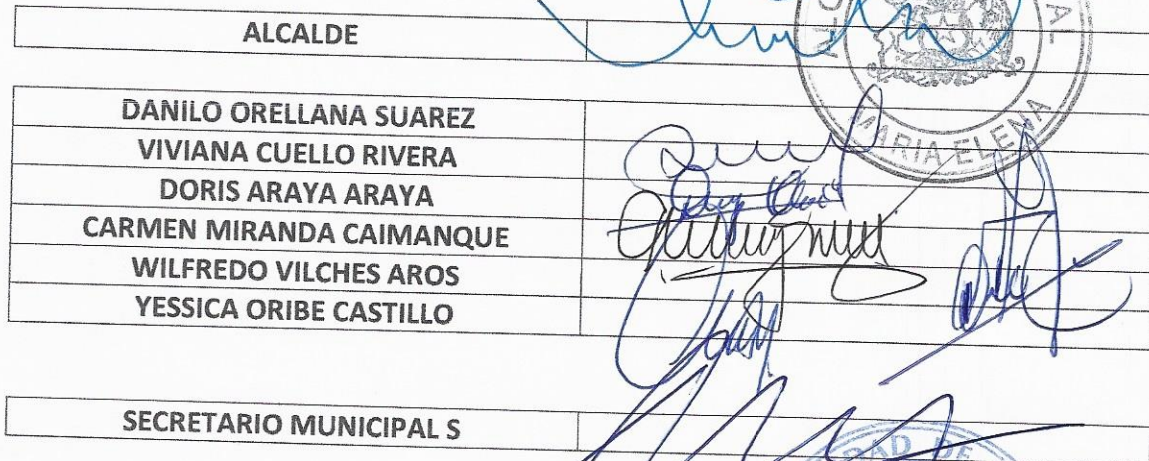 ALCALDE
AL
MARIA ELENA
DANILO ORELLANA SUAREZ
VIVIANA CUELLO RIVERA
DORIS ARAYA ARAYA
CARMEN MIRANDA CAIMANQUE
WILFREDO VILCHES AROS
YESSICA ORIBE CASTILLO
SECRETARIO MUNICIPAL S
DAD DE